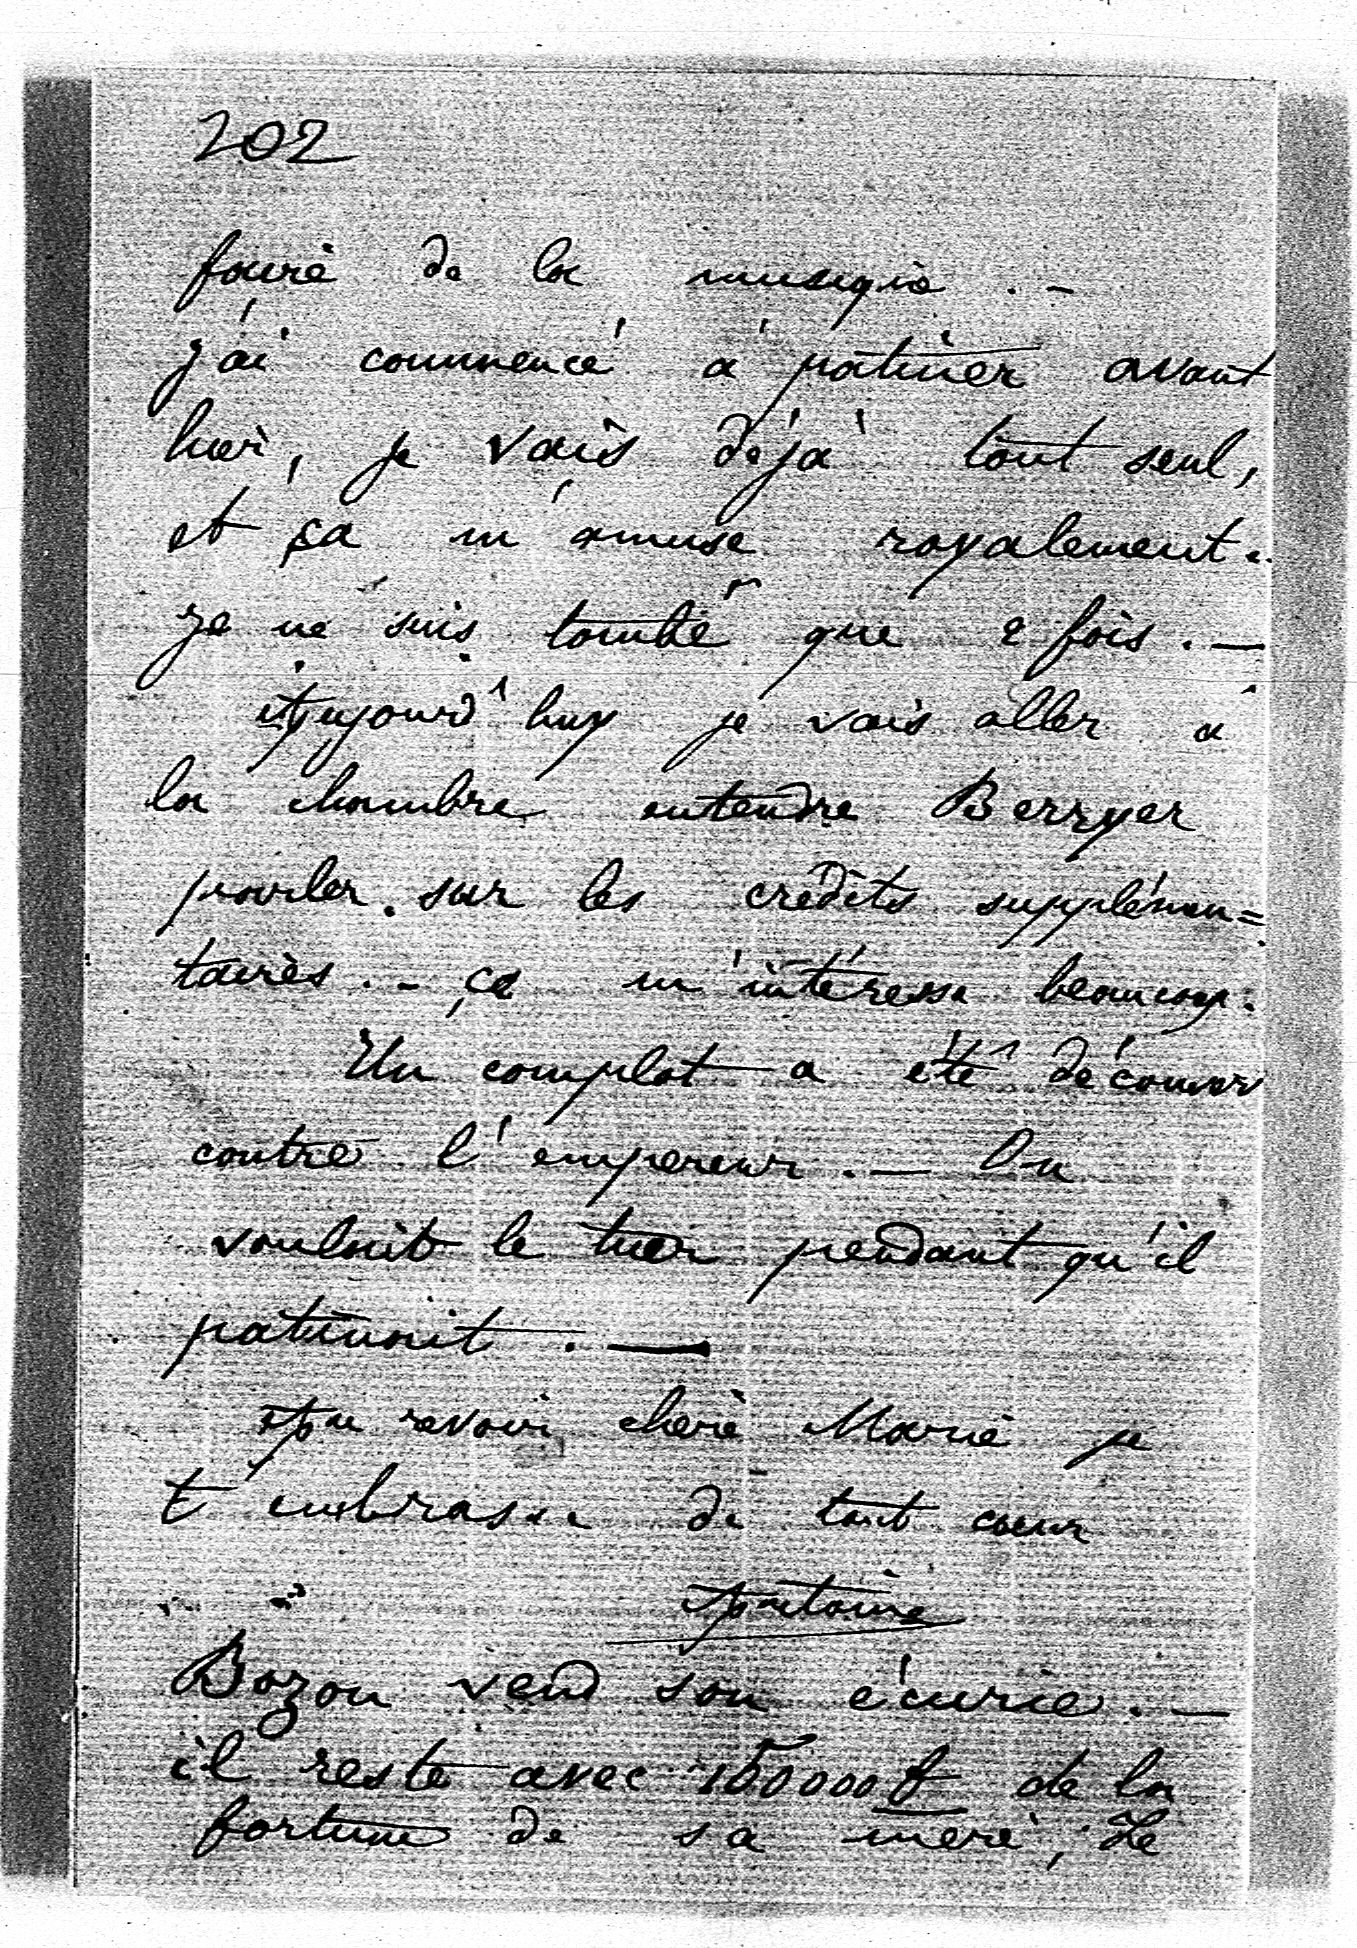 202
faire de la musique . –
j'ai commencé à patiner avant
hier, je vais déjà tout seul,
et ça m'amuse royalement .
je ne suis tombé que 2 fois . —
Aujourd'huy je vais aller à
la chambre entendre Berryer
parler sur les crédits supplémen=
taires . – ça m'intéresse beaucoup .
Un complot a été découver
contre l'empereur . — On
voulait le tuer pendant qu'il
patinait . —
Au revoir chère Marie je
t'embrasse de tout coeur
Antoine
Bozon vend son écurie . —
il reste avec 150000 f de la
fortune de sa mère, Le